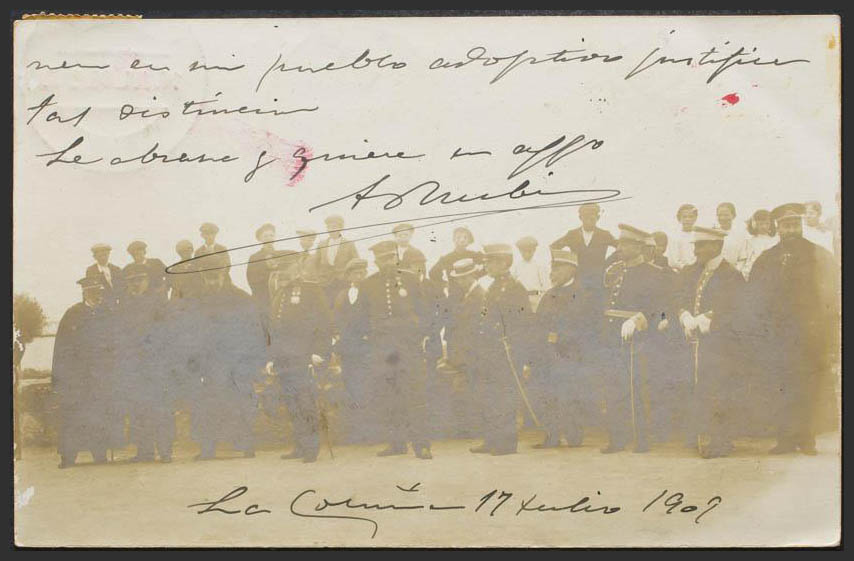 nen en mi pueblo adoptivo justifica
tal distincion
Le abraza y quiere su affo
La Coruña 17 Julio 1907